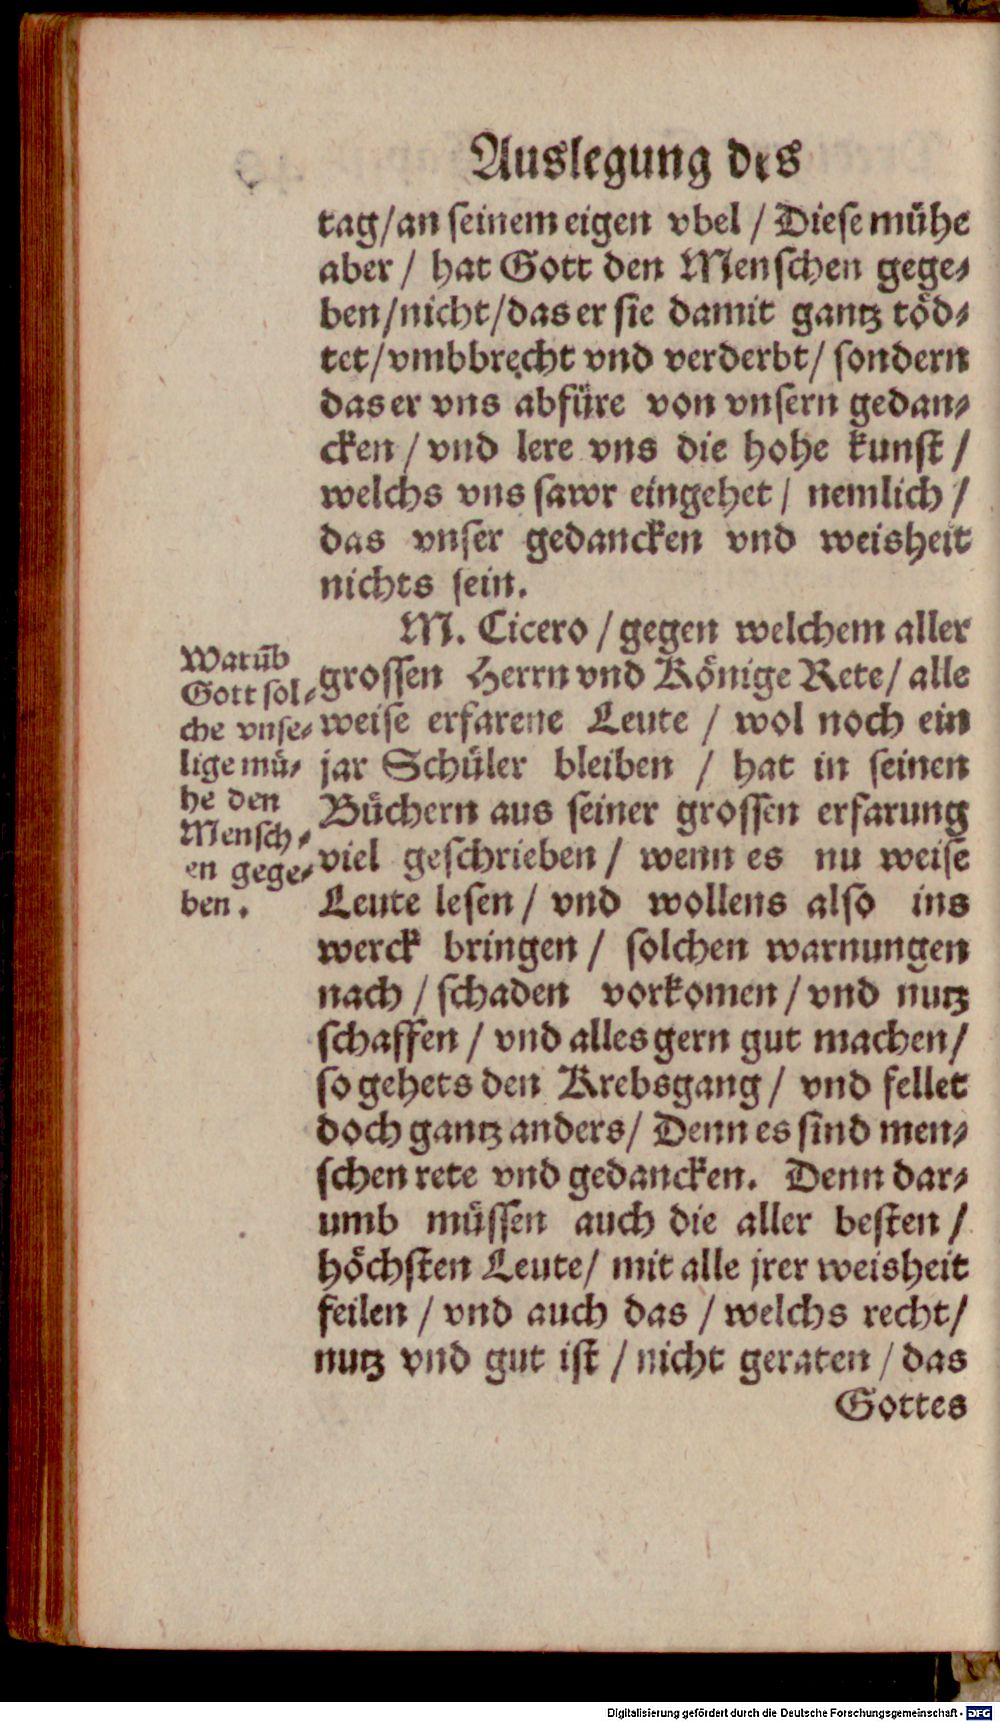 Auslegung des
tag/an seinem eigen vbel / Diese mühe
aber / hat Gott den Menschen gege⸗
ben/nicht/das er sie damit gantz töd⸗
tet/vmbbrecht vnd verderbt/ sondern
das er vns abfüre von vnsern gedan⸗
cken / vnd lere vns die hohe kunst /
welchs vns sawr eingehet / nemlich /
das vnser gedancken vnd weisheit
nichts sein.
M. Cicero / gegen welchem aller
grossen Herrn vnd Könige Rete/ alle
weise erfarene Leute / wol noch ein
jar Schüler bleiben / hat in seinen
Büchern aus seiner grossen erfarung
viel geschrieben / wenn es nu weise
Leute lesen / vnd wollens also ins
werck bringen / solchen warnungen
nach / schaden vorkomen / vnd nutz
schaffen / vnd alles gern gut machen/
so gehets den Krebsgang / vnd fellet
doch gantz anders/ Denn es sind men⸗
schen rete vnd gedancken. Denn dar⸗
umb müssen auch die aller besten /
höchsten Leute/ mit alle jrer weisheit
feilen / vnd auch das / welchs recht/
nutz vnd gut ist / nicht geraten / das
Gottes
Warūb
Gott sol⸗
che vnse⸗
lige mü⸗
he den
Mensch⸗
en gege⸗
ben.
Digitalisierung gefördert durch die Deutsche Forschungsgemeinschaft - DFG